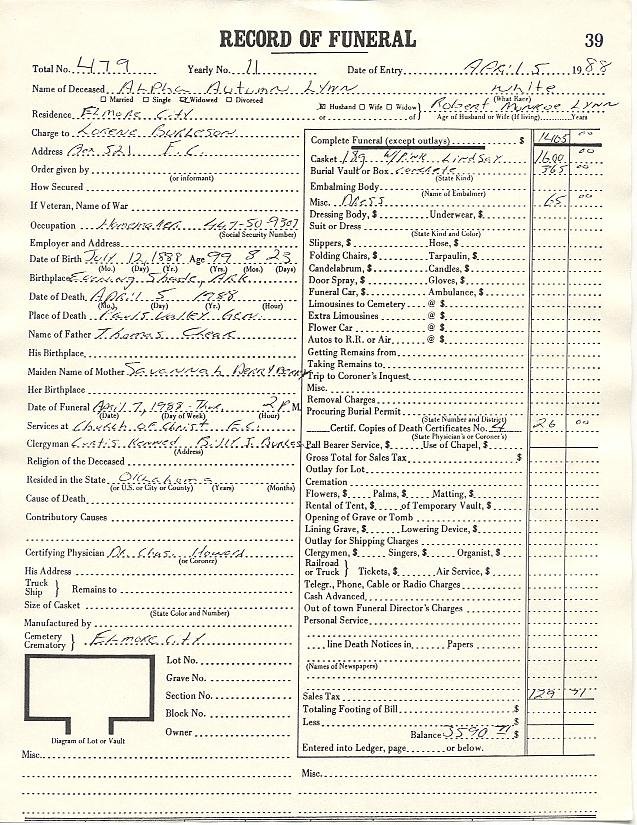 RECORD OF FUNERAL 39
Total No. 479 Yearly No. 11 Date of Entry April 5 1988
Name of Deceased Alpha Autumn Lynn white
☐ Married ☐ Single ☑ Widowed ☐ Divorced (What Race)
Residence Elmore City ☑ Husband ☐ Wife ☐ Widow of Robert Monroe Lynn
or of Age of Husband or Wife (If living) Years
Charge to Lorene Burleson
Address Box 521 E.C.
Order given by
(or informant)
How Secured
If Veteran, Name of War
Occupation Homemaker 447-50-9307
(Social Security Number)
Employer and Address
Date of Birth July 12, 1888 Age 99 8 23
(Mo.) (Day) (Yr.) (Yrs.) (Mos.) (Days)
Birthplace Evening Shade, Ark
Date of Death April 5 1988
(Mo.) (Day) (Yr.) (Hour)
Place of Death Pauls Valley Gen.
Name of Father Thomas
His Birthplace
Maiden Name of Mother Savannah Berry
Her Birthplace
Date of Funeral April 7, 1988 - Thur. 2 P M.
(Date) (Day of Week) (Hour)
Services at Church of Christ E.C.
(Address)
Clergyman Curtis Billy J.
Religion of the Deceased
Resided in the State Oklahoma
(or U.S. or City or County) (Years) (Months)
Cause of Death
Contributory Causes
Certifying Physician Dr. Chas. Howard
(or Coroner)
His Address
Truck
Ship } Remains to
Size of Casket
(State Color and Number)
Manufactured by
Cemetery
Crematory } Elmore City
Lot No.
Grave No.
Section No.
Block No.
Owner
Diagram of Lot or Vault
Misc.
Complete Funeral (except outlays) $ 1405 00
Casket 189 w/Pink Lindsay 1600 00
Burial Vault or Box concrete 365 00
(State Kind)
Embalming Body
(Name of Embalmer)
Misc. Dress 65 00
Dressing Body, $ Underwear, $
Suit or Dress
(State Kind and Color)
Slippers, $ Hose, $
Folding Chairs, $ Tarpaulin, $
Candelabrum, $ Candles, $
Door Spray, $ Gloves, $
Funeral Car, $ Ambulance, $
Limousines to Cemetery @ $
Extra Limousines @ $
Flower Car @ $
Autos to R.R. or Air @ $
Getting Remains from
Taking Remains to
Trip to Coroner's Inquest
Misc.
Removal Charges
Procuring Burial Permit
(State Number and District)
Certif. Copies of Death Certificates No. 4 26 00
(State Physician's or Coroner's)
Pall Bearer Service, $ Use of Chapel, $
Gross Total for Sales Tax $
Outlay for Lot
Cremation
Flowers, $ Palms, $ Matting, $
Rental of Tent, $ of Temporary Vault, $
Opening of Grave or Tomb
Lining Grave, $ Lowering Device, $
Outlay for Shipping Charges
Clergymen, $ Singers, $ Organist, $
Railroad
or Truck } Tickets, $ Air Service, $
Telegr., Phone, Cable or Radio Charges
Cash Advanced
Out of town Funeral Director's Charges
Personal Service
line Death Notices in Papers
(Names of Newspapers)
Sales Tax 129 71
Totaling Footing of Bill $
Less $
Balance 3590 71 $
Entered into Ledger, page or below.
Misc.